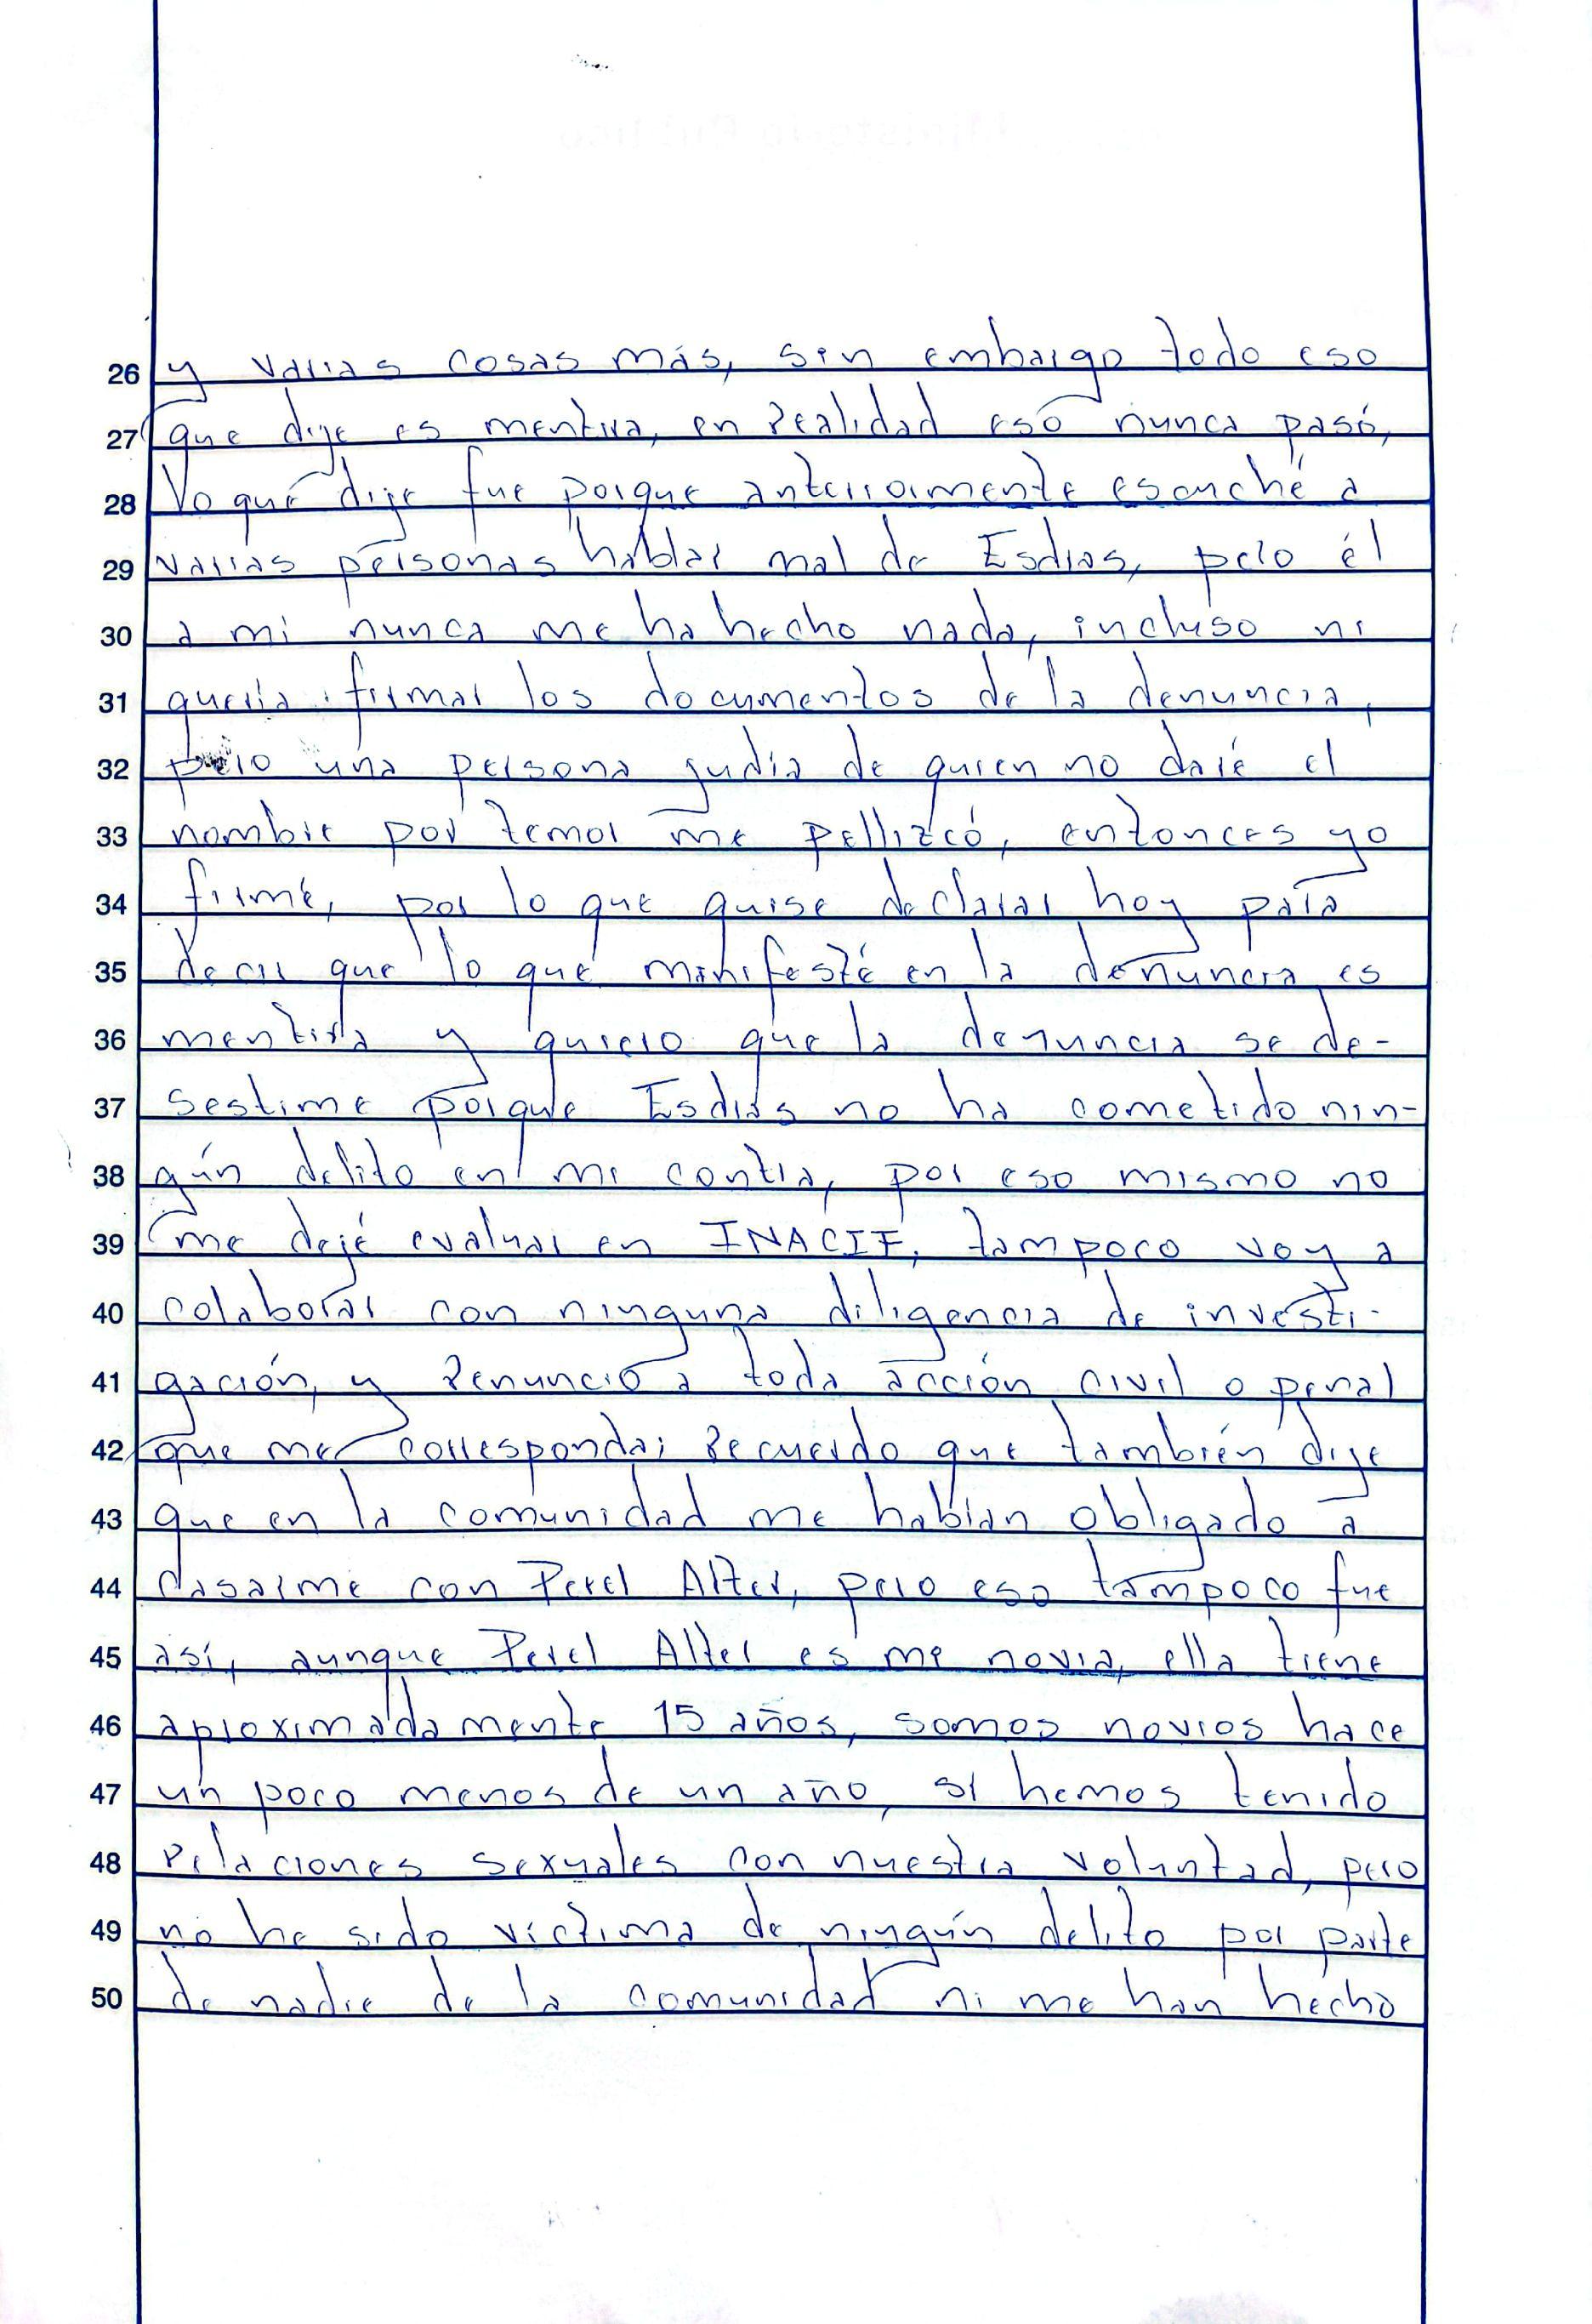 26 y varias cosas más, sin embargo todo eso
27 que dije es mentira, en realidad eso nunca pasó,
28 lo que dije fue porque anteriormente escuché a
29 varias personas hablar mal de Esdras, pero él
30 a mi nunca me ha hecho nada, incluso ni
31 quería firmar los documentos de la denuncia,
32 pero una persona judia de quien no daré el
33 nombre por temor me pellizcó, entonces yo
34 firmé, por lo que quise declarar hoy para
35 decir que lo que manifesté en la denuncia es
36 mentira y quiero que la denuncia se de-
37 sestime porque Esdras no ha cometido nin-
38 gún delito en mi contra, por eso mismo no
39 me dejé evaluar en INACIF, tampoco voy a
40 colaborar con ninguna diligencia de investi-
41 gación, y renuncio a toda acción civil o penal
42 que me corresponda; recuerdo que también dije
43 que en la comunidad me habían obligado a
44 casarme con Perel Alter, pero eso tampoco fue
45 así, aunque Perel Alter es mi novia, ella tiene
46 aproximadamente 15 años, somos novios hace
47 un poco menos de un año, si hemos tenido
48 relaciones sexuales con nuestra voluntad, pero
49 no he sido víctima de ningún delito por parte
50 de nadie de la comunidad ni me han hecho